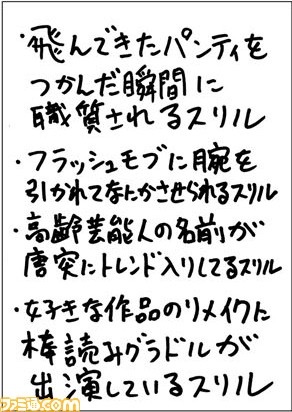 ・飛んできたパンティを
つかんだ瞬間に
職質されるスリル
・フラッシュモブに腕を
引かれてなにかさせられるスリル
・高齢芸能人の名前が
唐突にトレンド入りしてるスリル
・好きな作品のリメイクに
棒読みグラドルが
出演しているスリル
ファミ通.com